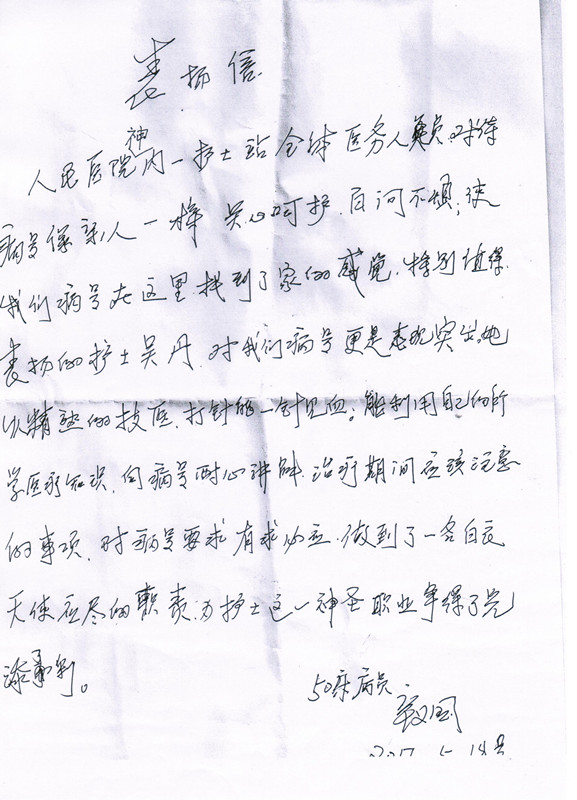 表扬信
人民医院神内一护士站全体医务人员。对待
病号像亲人一样 关心呵护,百问不烦;使
我们病号在这里找到了家的感觉,特别值得
表扬的护士吴丹,对我们病号更是表现突出。她
以精熟的技医,打针能一针见血。能利用自己的所
学医疗知识,向病号耐心讲解 治疗期间应该注意
的事项,对病号要求有求必应,做到了一名白衣
天使应尽的职责,为护士这一神圣职业争得了光
添
50床病员
2017